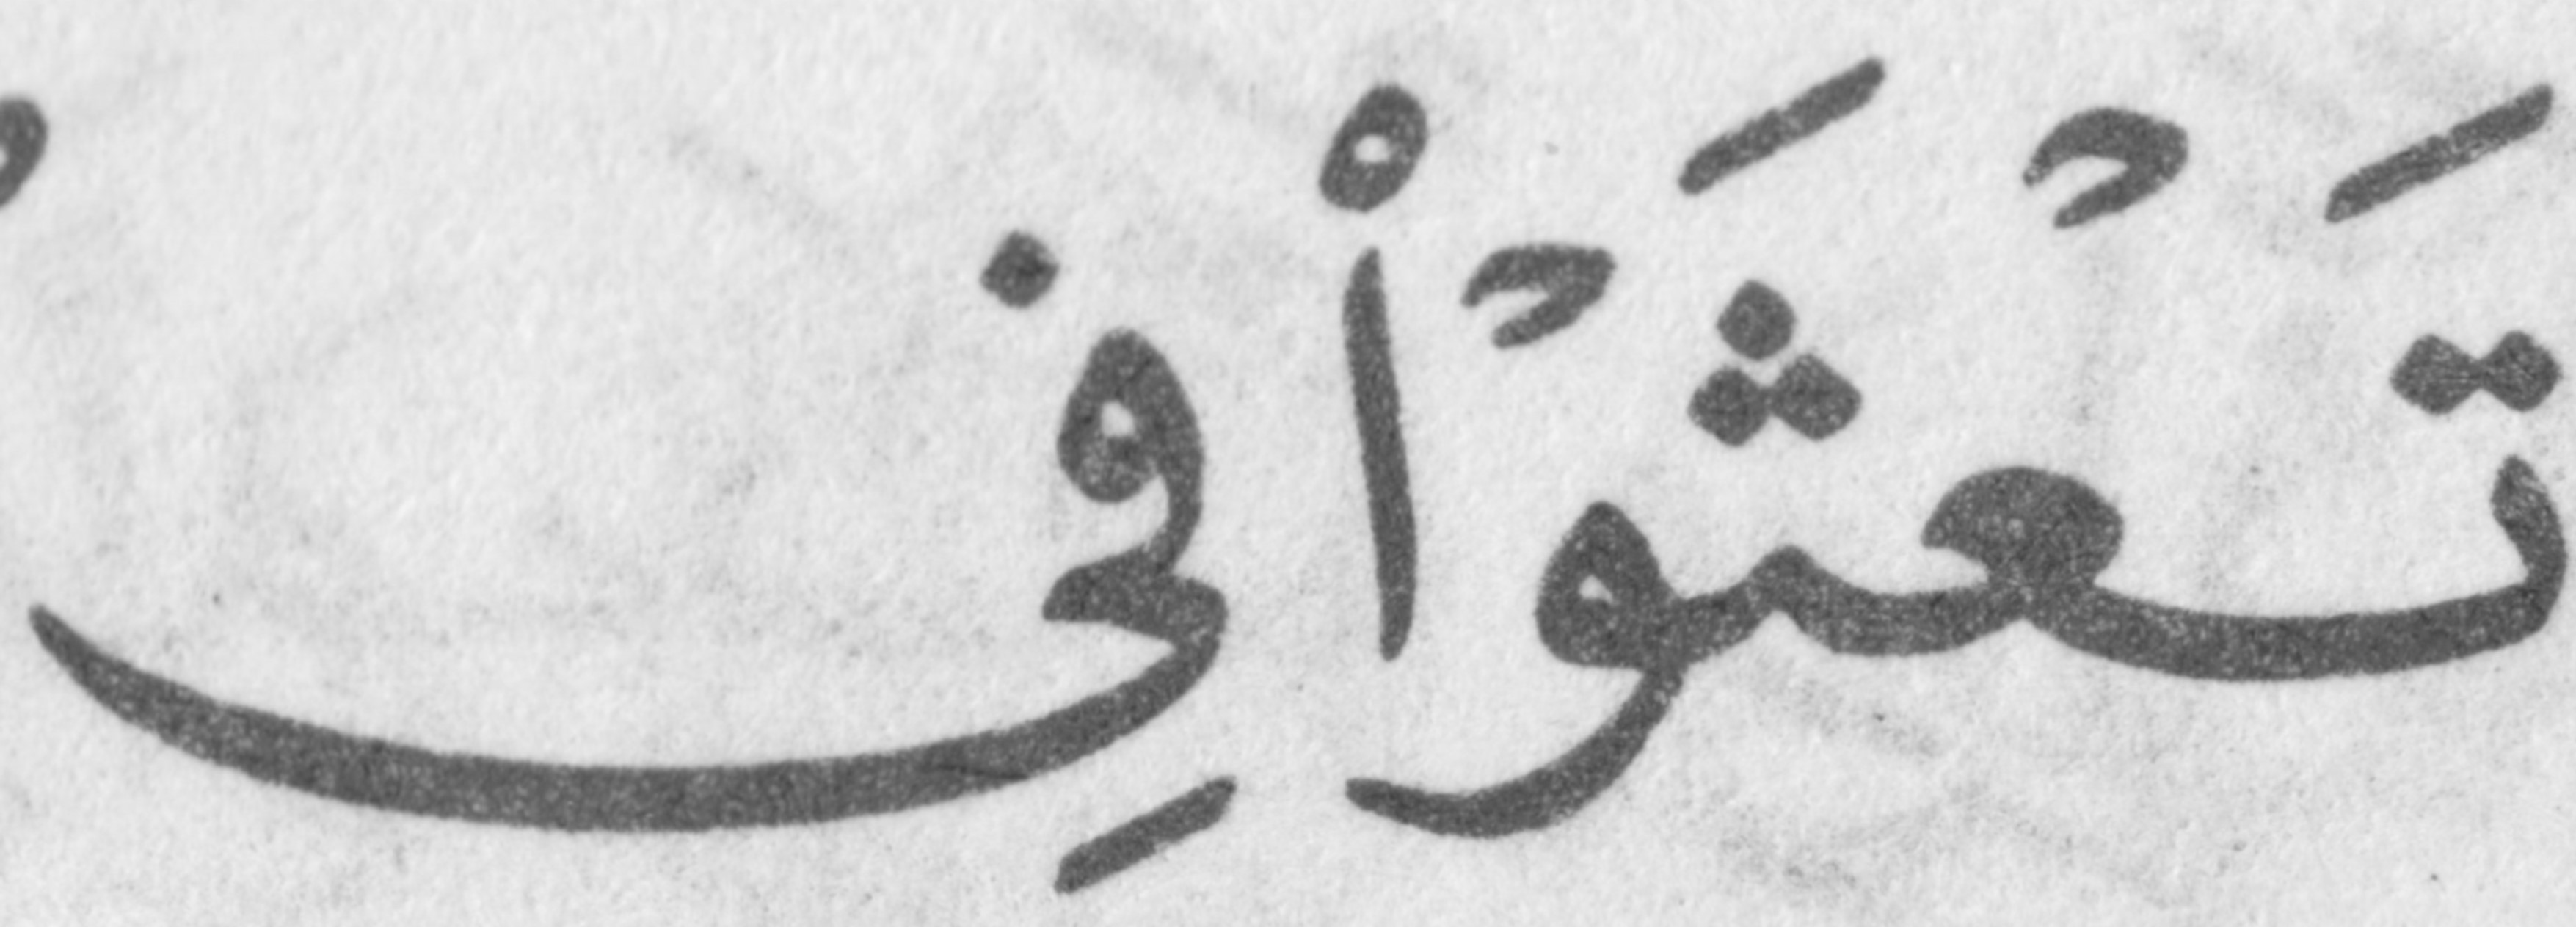 تَعۡثَوۡاْ فِي